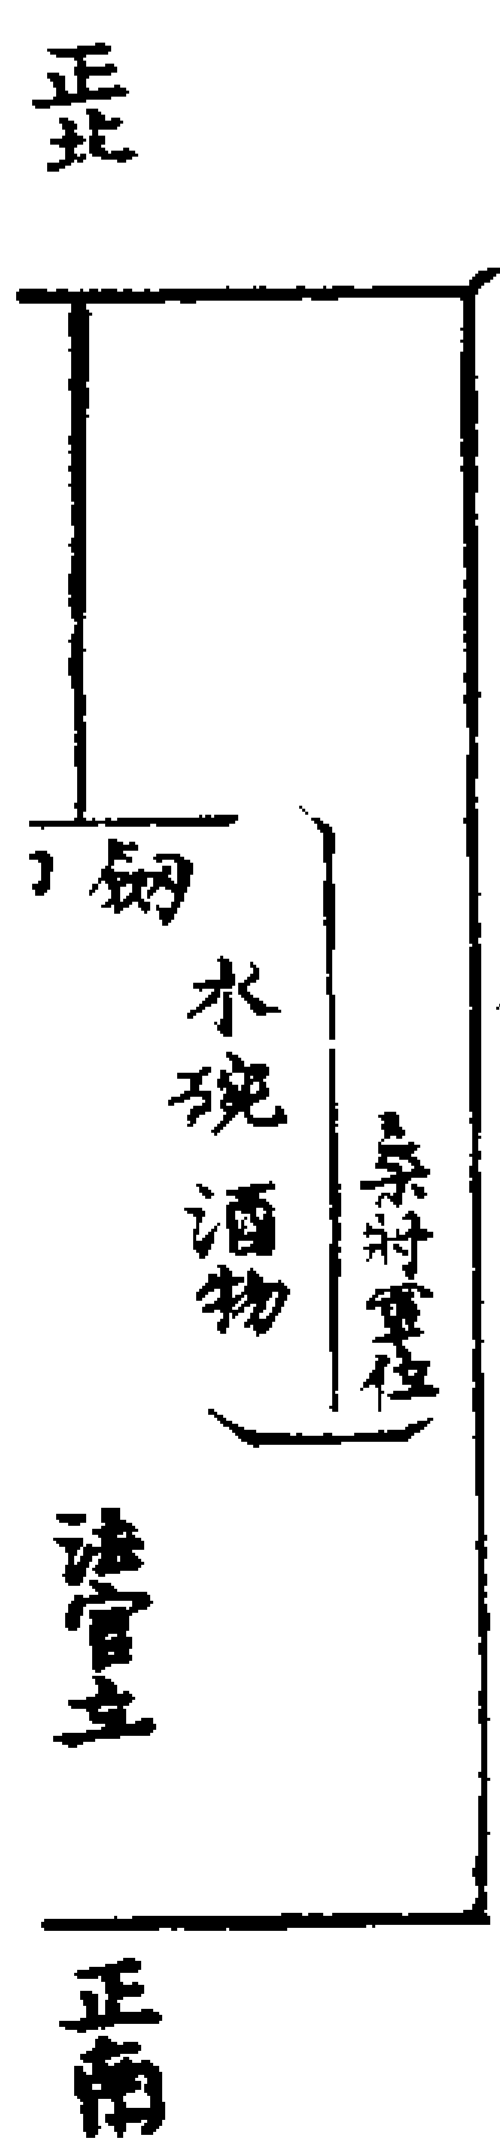 正北
水碗
酒物
将軍位
法官立
正南